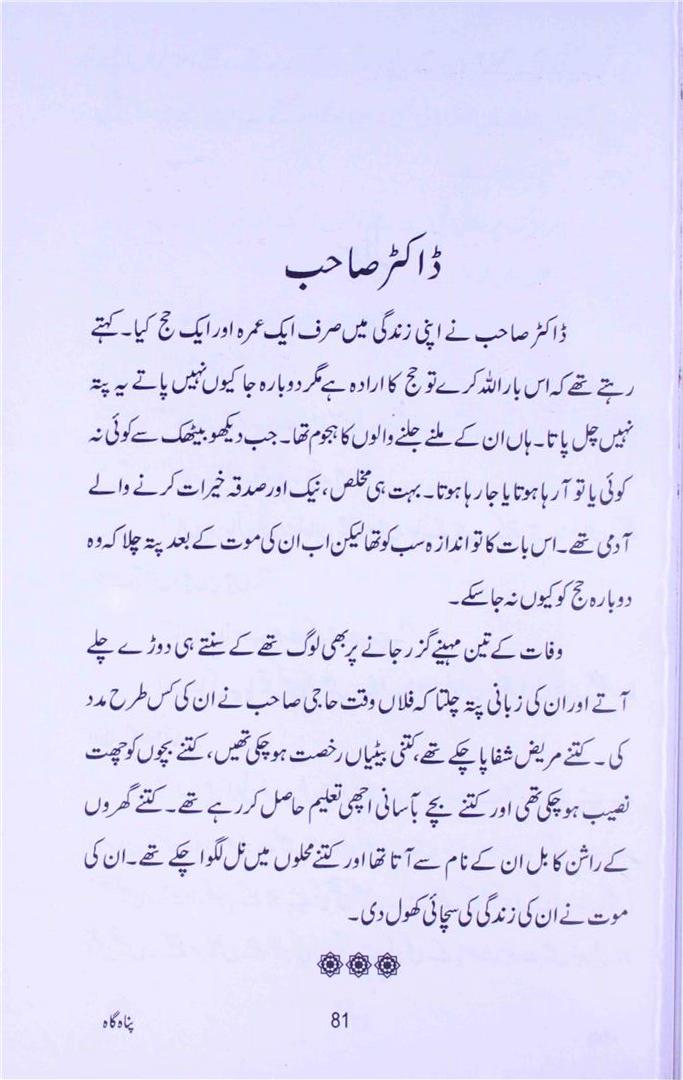 ڈاکٹر صاحب
ڈاکٹر صاحب نے اپنی زندگی میں صرف ایک عمرہ اور ایک حج کیا۔ کہتے
رہتے تھے کہ اس بار اللہ کرے تو حج کا ارادہ ہے مگر دوبارہ جا کیوں نہیں پاتے یہ پتہ
نہیں چل پاتا۔ ہاں ان کے ملنے جلنے والوں کا ہجوم تھا۔ جب دیکھو بیٹھک سے کوئی نہ
کوئی یا تو آ رہا ہوتا یا جا رہا ہوتا۔ بہت ہی مخلص، نیک اور صدقہ خیرات کرنے والے
آدمی تھے۔ اس بات کا تو اندازہ سب کو تھا لیکن اب ان کی موت کے بعد پتہ چلا کہ وہ
دوبارہ حج کو کیوں نہ جا سکے۔
وفات کے تین مہینے گزر جانے پر بھی لوگ تھے کے سنتے ہی دوڑے چلے
آتے اور ان کی زبانی پتہ چلتا کہ فلاں وقت حاجی صاحب نے ان کی کس طرح مدد
کی۔ کتنے مریض شفا پا چکے تھے، کتنی بیٹیاں رخصت ہو چکی تھیں، کتنے بچوں کو چھت
نصیب ہو چکی تھی اور کتنے بچے بآسانی اچھی تعلیم حاصل کر رہے تھے۔ کتنے گھروں
کے راشن کا بل ان کے نام سے آتا تھا اور کتنے محلوں میں نل لگوا چکے تھے۔ ان کی
موت نے ان کی زندگی کی سچائی کھول دی۔
81
پناہ گاہ